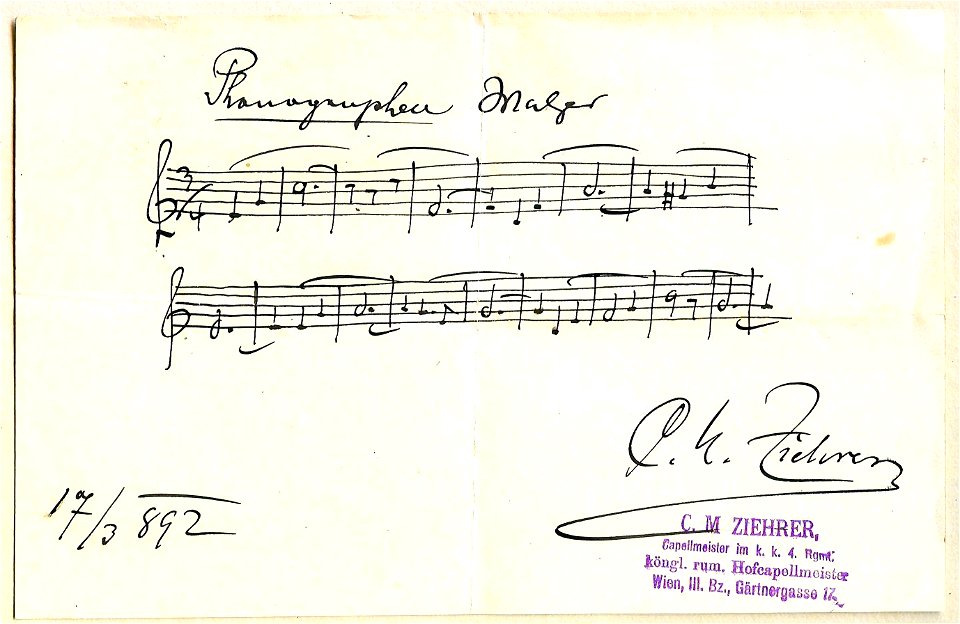 Phonographen Walzer
3/4
C. M. Ziehrer
17/3 892
C. M ZIEHRER,
Capellmeister im k. k. 4. Rgmt.
köngl. rum. Hofcapellmeister
Wien, III. Bz., Gärtnergasse 17.